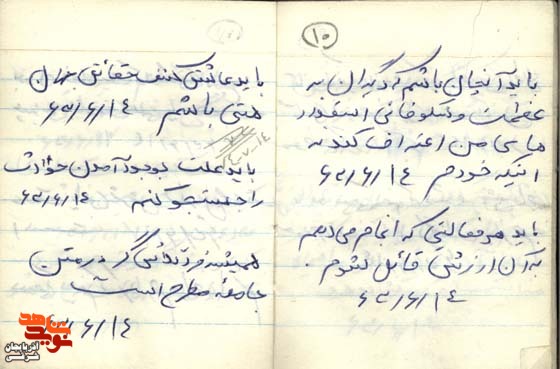 ۱۰
باید آنچنان باشم که دیگران به
عظمت و شکوفائی استعداد
های من اعتراف کنند نه
اینکه خودم ۶۳/۶/۱۴
باید هر فعالیتی که انجام می دهم
به آن ارزشی قائل شوم.
۶۳/۶/۱۴
باید عاشق کشف حقائق جهان
هستی باشم ۶۳/۶/۱۴
باید علت بوجود آمدن حوادث
را جستجو کنم ۶۳/۶/۱۴
همیشه فرد تلاش گر در متن
جامعه مطرح است
۶۳/۶/۱۴
نوید شاهد
آذربایجان